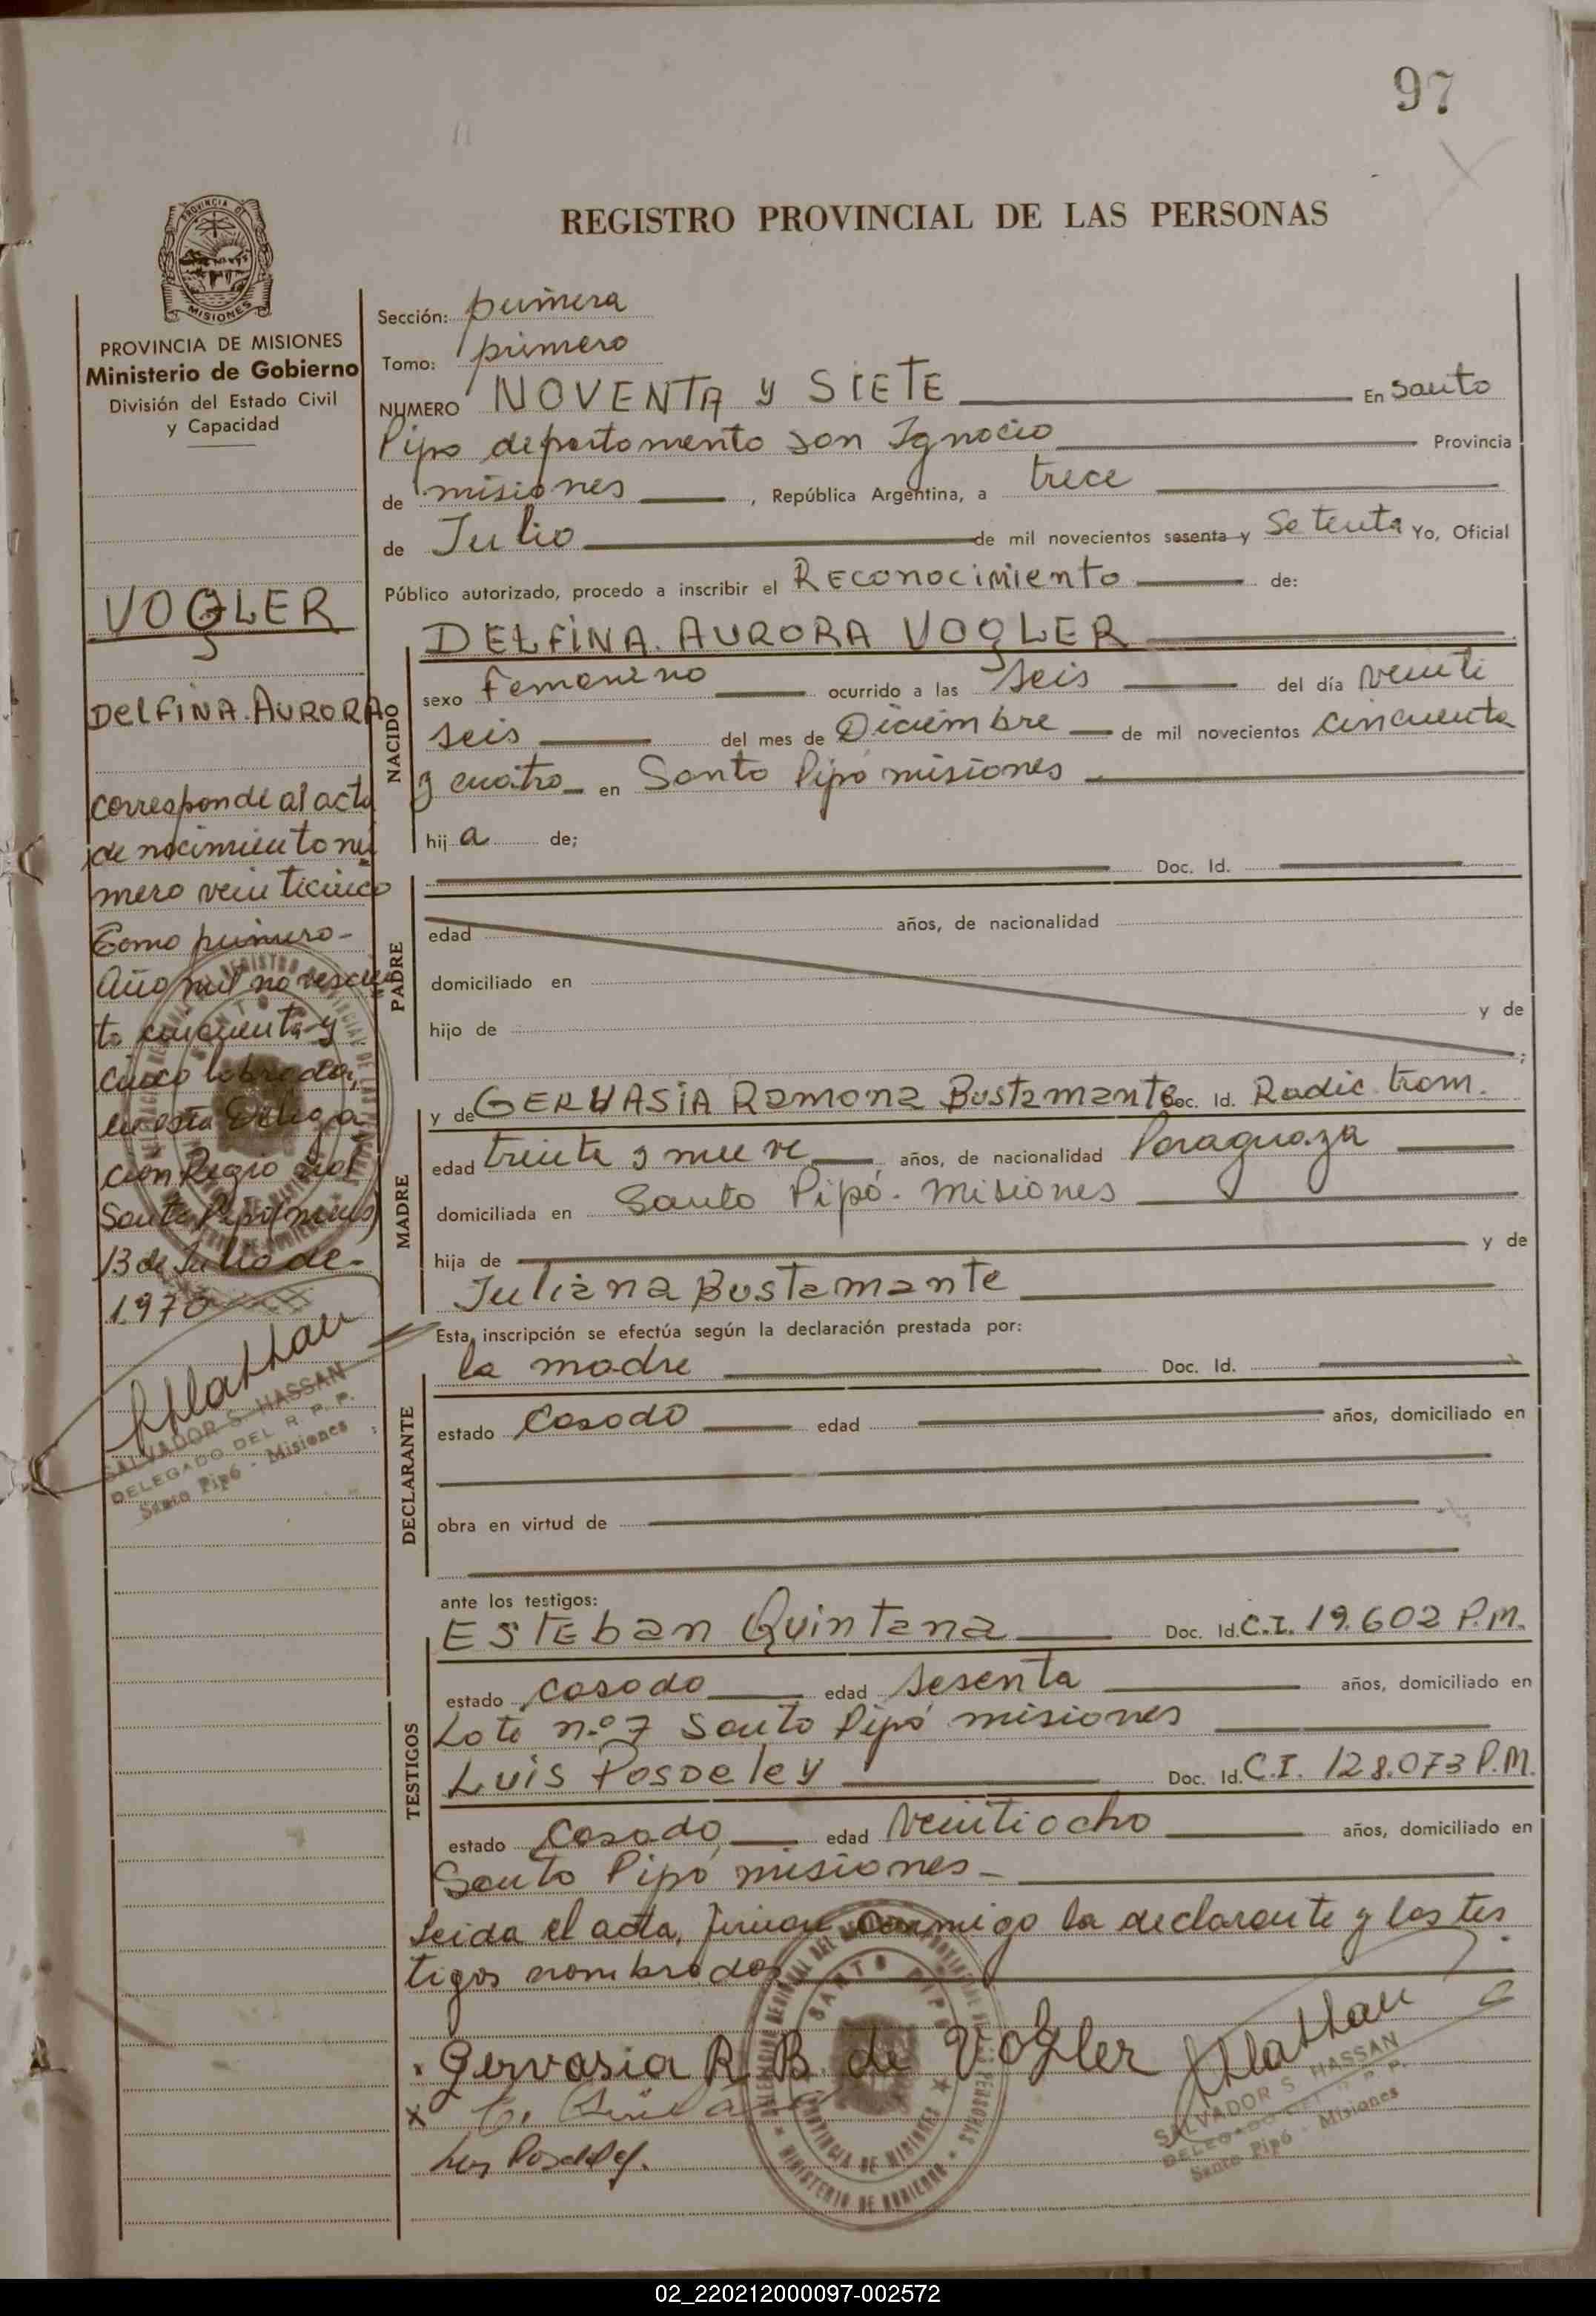 97
REGISTRO PROVINCIAL DE LAS PERSONAS
PROVINCIA DE MISIONES
PROVINCIA DE MISIONES
Ministerio de Gobierno
División del Estado Civil
y Capacidad
VOGLER
DELFINA. AURORA
corresponde al acta
de nacimiento nú
mero veinticinco
Tomo primero-
Año mil novescien
to cincuenta y
cinco labrada,
en esta Delega
ción Regio
Santo Pipó (mnes)
13 de Julio de-
1970
SALVADOR S. HASSAN
DELEGADO DEL R. P. P.
Santo Pipó - Misiones
Sección: primera
Tomo: primero
NUMERO NOVENTA y SIETE En Santo
Pipo departamento san Ignacio Provincia
de misiones , República Argentina, a trece
de Julio de mil novecientos sesenta y Setenta Yo, Oficial
Público autorizado, procedo a inscribir el Reconocimiento de:
DELFINA. AURORA VOGLER
NACIDO
sexo Femenino ocurrido a las seis del día veinti
seis del mes de Diciembre de mil novecientos cincuenta
y cuatro en Santo Pipó misiones
hij a de;
PADRE
Doc. Id.
edad años, de nacionalidad
domiciliado en
hijo de y de
;
MADRE
y de GERVASIA Ramona Bustamante Doc. Id. Radic. tram.
edad treinta y nueve años, de nacionalidad Paraguaya
domiciliada en Santo Pipó. Misiones
hija de y de
Juliana Bustamante
Esta inscripción se efectúa según la declaración prestada por:
DECLARANTE
la madre Doc. Id.
estado Casado edad años, domiciliado en
obra en virtud de
ante los testigos:
TESTIGOS
ESTEban Quintana Doc. Id. C.I. 19.602 P.M.
estado casado edad sesenta años, domiciliado en
Lote n.º 7 Santo Pipó misiones
Luis Posdeley Doc. Id. C.I. 128.073 P.M.
estado Casado edad veintiocho años, domiciliado en
Santo Pipó misiones-
Leida el acta, firman conmigo la declarante y los tes
tigos nombrados
SANTO PIPO
PROVINCIA DE MISIONES
MINISTERIO DE GOBIERNO
Gervasia R. B. de Vogler
SALVADOR S. HASSAN
DELEGADO DEL R. P. P.
Santo Pipó - Misiones
02_220212000097-002572